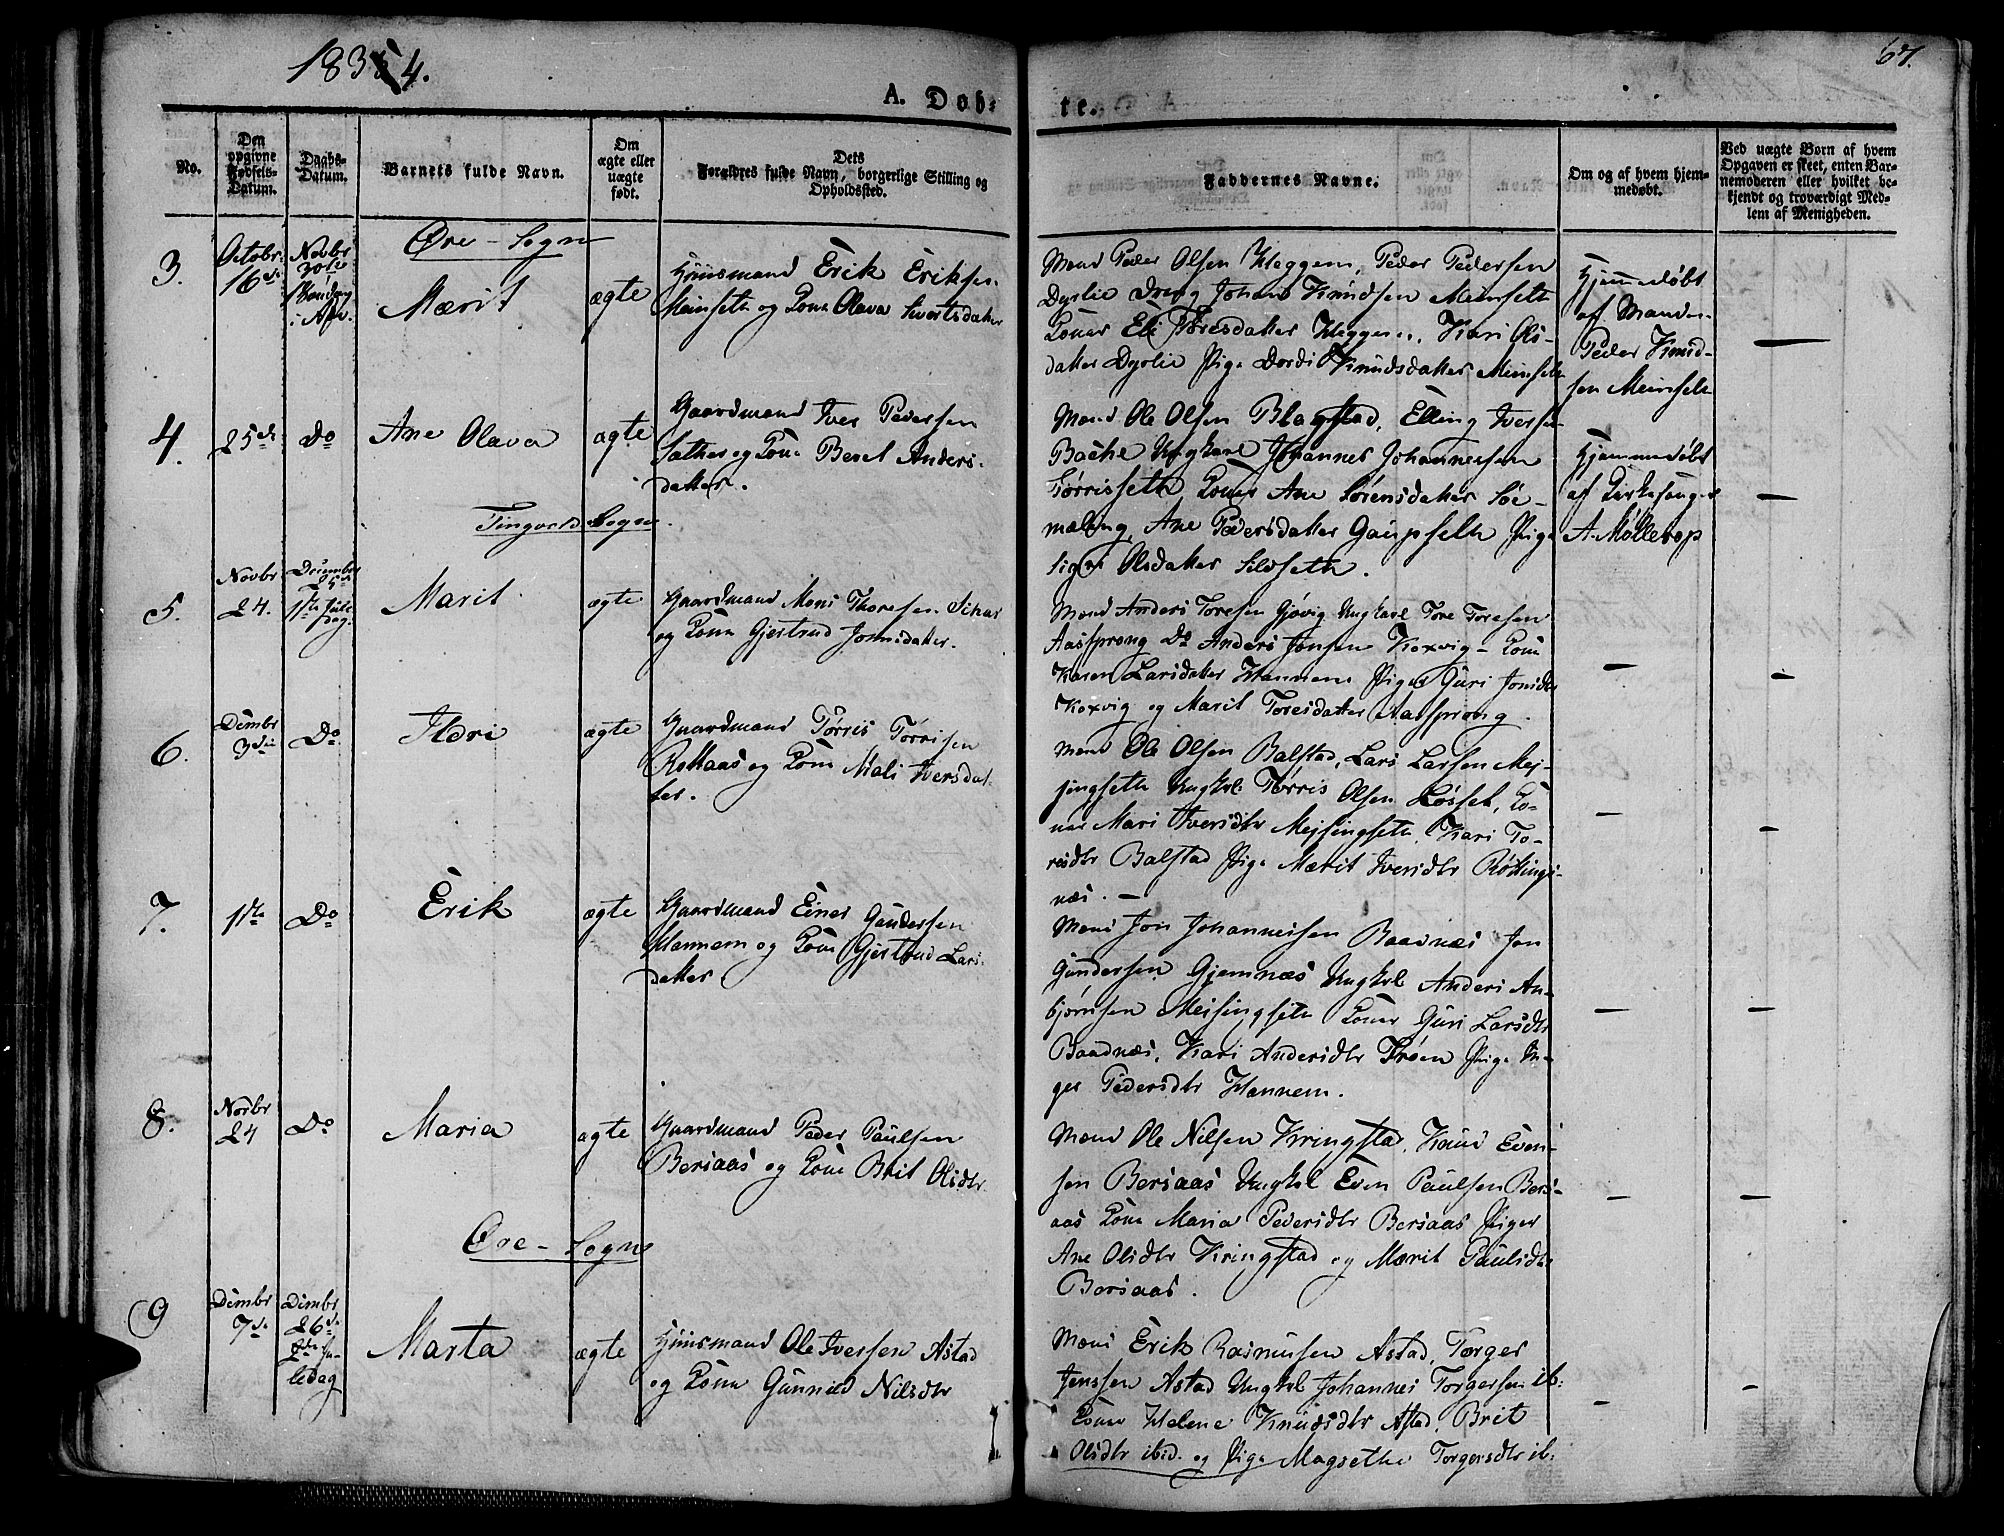 18354.
67.
A. Døb-
te.
No.
Den opgivne Fødsels-Datum.
Daabs-Datum.
Barnets fulde Navn.
Om ægte eller uægte født.
Dets Forældres fulde Navn, borgerlige Stilling og Opholdssted.
Faddernes Navne.
Om og af hvem hjem-medøbt.
Ved uægte Børn af hvem Opgaven er skeet, enten Bar-nemoderen eller hvilket be-kjendt og troværdigt Med-lem af Menigheden.
Øre-Sogn
3.
Octobr 16de
Novbr 30te
i Adv.
Mærit
ægte
Huusmand Erik Eriksen
Meinseth og Kone Olava Sivertsdatter
Mænd Peder Olsen Heggem, Peder Pedersen
Dyrlie Dreng Johan Knudsen Meinseth
Koner Eli Toresdatter Heggem, Kari Ols-
datter Dyrlie Pige Dordi Knudsdatter Meinseth
Hjemmedøbt
af Manden
Peder Knud-
sen Meinseth
4.
25de
Do
Ane Olava
ægte
Gaardmand Iver Pedersen
Sæther og Kone Beret Anders-
datter.
Mænd Ole Olsen Blagstad, Elling Iversen
Bache Ungkarl Johannes Johannessen
Tørrisseth Koner Ane Sørensdatter Søe-
mæling, Ane Pedersdatter Gaupseth Pige
Signe Olsdatter Silseth.
Hjemmedøbt
af Kirkesanger
A. Møllerop
Tingvold Sogn.
5.
Novbr
24.
December
25de
1ste Jule-
dag.
Marit
ægte
Gaardmand Mons Thoresen
og Kone Gjertrud Jonsdatter.
Mænd Anders Toresen Gjøvig Ungkarl Tore Toresen
Aassprong Do Anders Jonsen Koxvig - Kone
Karen Larsdatter Hannem Piger Guri Jonsdtr
Koxvig og Marit Toresdatter Aassprong.
6.
Dcmbr
3die
Do
Ildri
ægte
Gaardmand Tørris Tørrisen
Rottaas og Kone Mali Iversdat-
ter.
Mænd Ole Olsen Balstad, Lars Larsen Mej-
singseth Ungkrl Tørris Olsen Løsset, Ko-
ner Mari Iversdtr Mejsingseth, Kari To-
resdtr Balstad Pige Mærit Iversdtr Røttings-
næs. -
7.
1ste
Do
Erik
ægte
Gaardmand Einer Gundersen
Hannem og Kone Gjertrud Lars-
datter
Mænd Jon Johannessen Baadnæs Jon
Gundersen Gjemnæs Ungkrl Anders An-
bjørnsen Meisingseth Koner Guri Larsdtr
Baadnæs, Kari Andersdtr Trøen Pige In-
ger Pedersdtr Hannem.
8.
Novbr
24
Do
Maria
ægte
Gaardmand Peder Paulsen
Bersaas og Kone Brit Olsdtr
Mænd Ole Nilsen Kringstad, Knud Even-
sen Bersaas Ungkrl Even Paulsen Bers-
aas Kone Maria Pedersdtr Bersaas Piger
Ane Olsdtr Kringstad og Mærit Paulsdtr
Bersaas.
Øre-Sogn
9
Dcmbr
7de
Dcmbr
26de
2den Ju-
ledag
Marta
ægte
Huusmand Ole Iversen Astad
og Kone Gunnild Nilsdtr
Mænd Erik Rasmusen Astad, Torger
Jenssen Astad Ungkrl Johannes Torgersen ib:
Koner Helene Knudsdtr Astad, Brit
Olsdtr ibid. og Pige Magrethe Torgersdtr ib: